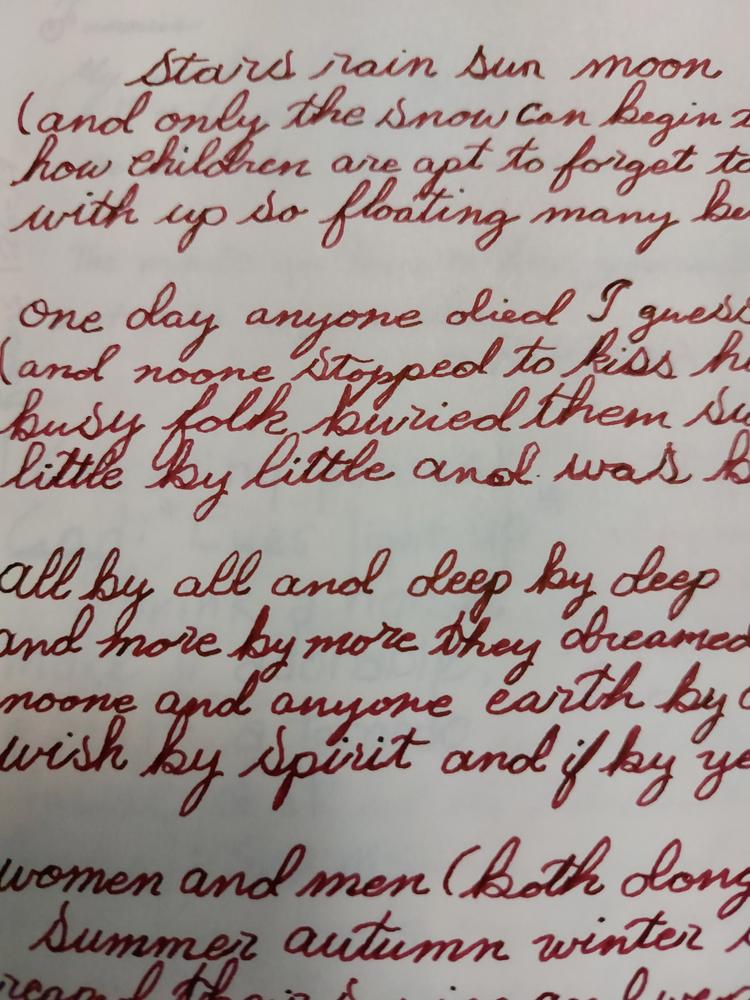 stars rain sun moon
(and only the snow can begin
how children are apt to forget to
with up so floating many be
one day anyone died I guess
(and noone stopped to kiss hi
busy folk buried them su
little by little and was b
all by all and deep by deep
and more by more they dreamed
noone and anyone earth by
wish by spirit and if by ye
women and men (both dong
summer autumn winter s